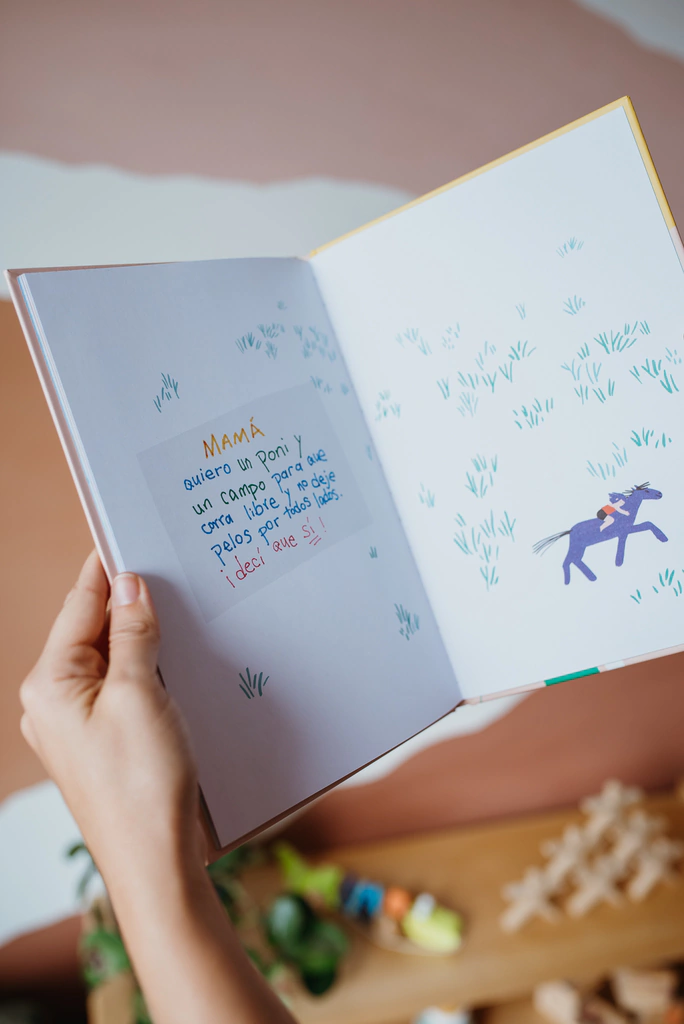 MAMÁ
quiero un poni y
un campo para que
corra libre y no deje
pelos por todos lados.
¡decí que sí!